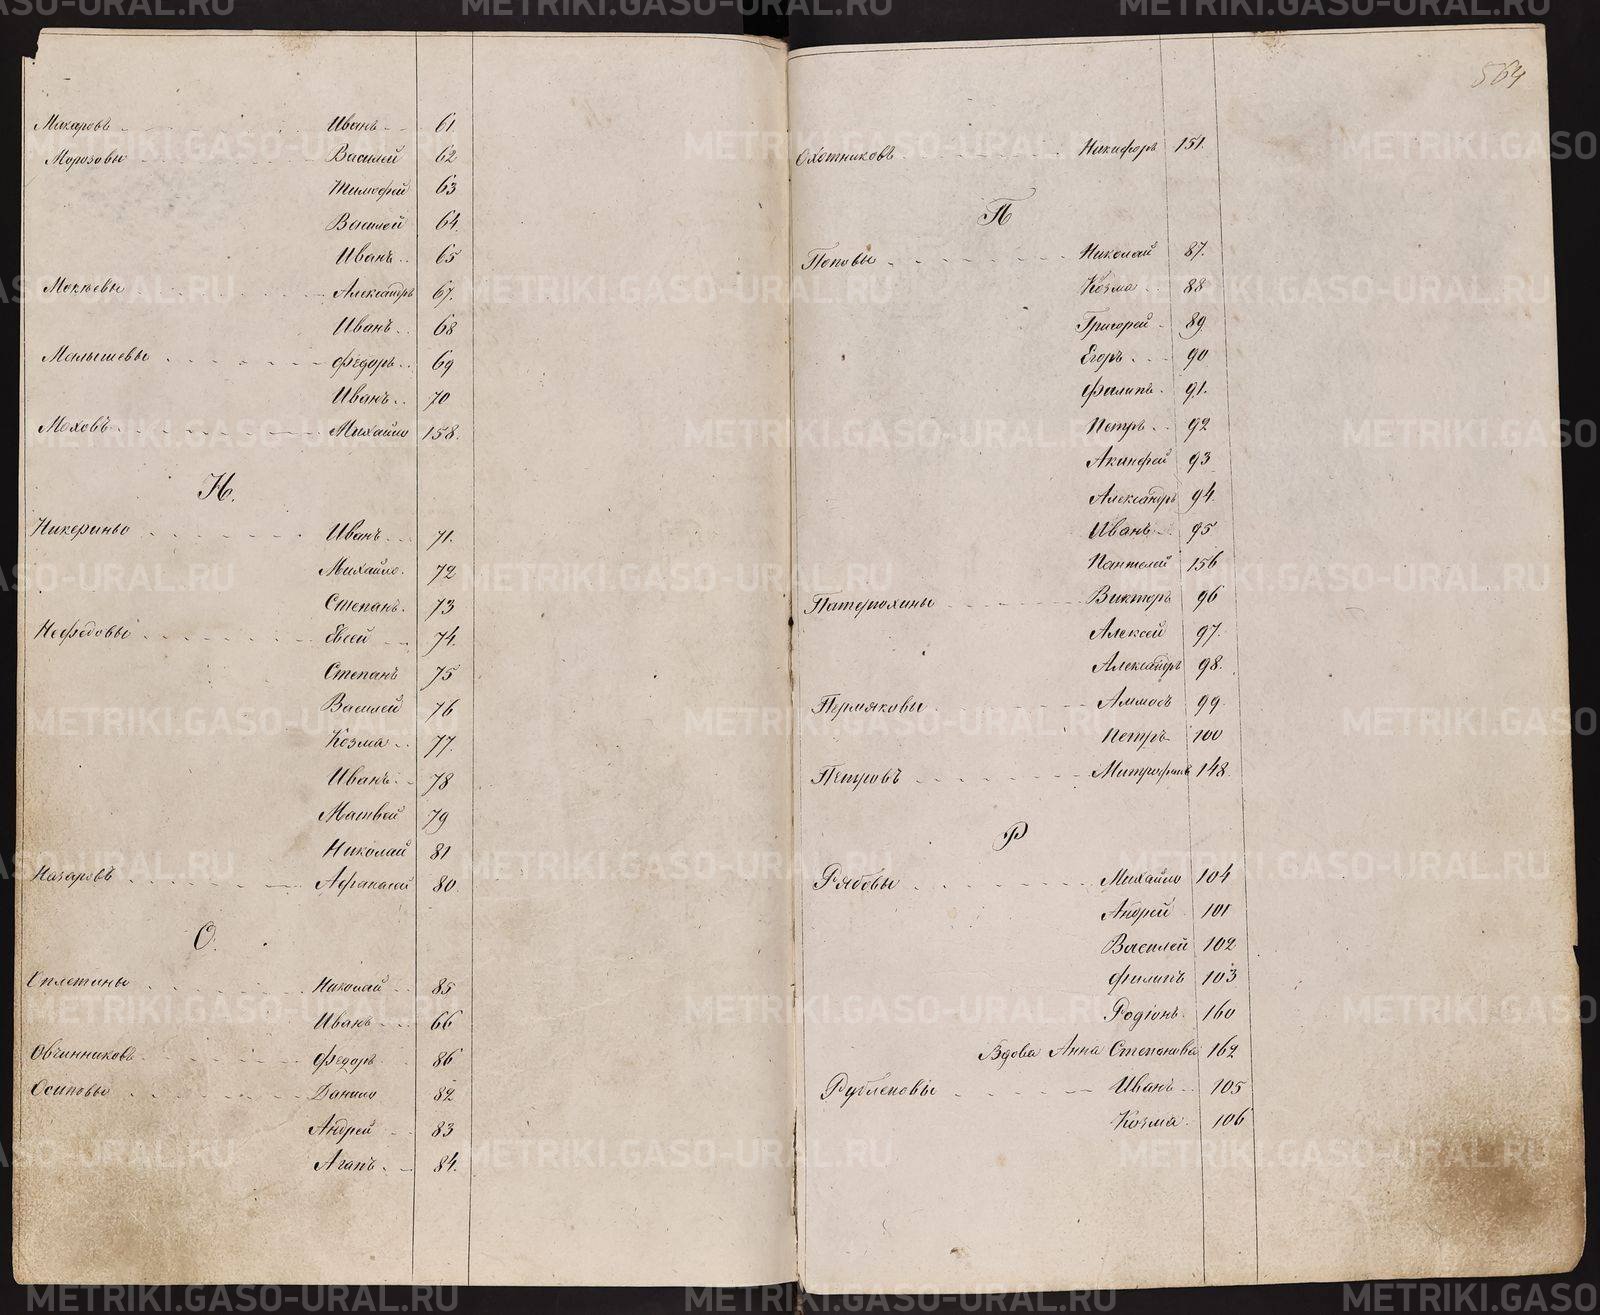 Макаровъ Иванъ 61.
Морозовы Василей 62
Тимофей 63
Василей 64.
Иванъ 65
Мокѣевы Александръ 67.
Иванъ 68
Малышевы Федоръ 69
Иванъ 70
Моховъ Михайло 158.
Н.
Никерины Иванъ 71.
Михайло 72
Степанъ 73
Нефедовы Евсей 74.
Степанъ 75
Василей 76
Козма 77.
Иванъ 78
Матвей 79
Николай 81
Назаровъ Афанасей 80
О.
Оплетины Николай 85
Иванъ 66
Овчинниковъ Федоръ 86
Осиповы Данило 82
Андрей 83
Агапъ 84.
564
Охотниковъ Никифоръ 151.
П
Поповы Николай 87.
Козма 88
Григорей 89
Егоръ 90
Филипъ 91.
Петръ 92
Акинфей 93
Александръ 94.
Иванъ 95
Пантелей 156
Патерюхины Викторъ 96
Алексей 97.
Александръ 98.
Пермяковы Аммосъ 99.
Петръ 100
Петровъ Митрофанъ 148.
Р
Рябовы Михайло 104
Андрей 101
Василей 102
Филипъ 103
Родіонъ 160
Вдова Анна Степанива 162
Рублевовы Иванъ 105
Козма 106
METRIKI.GASO-URAL.RU